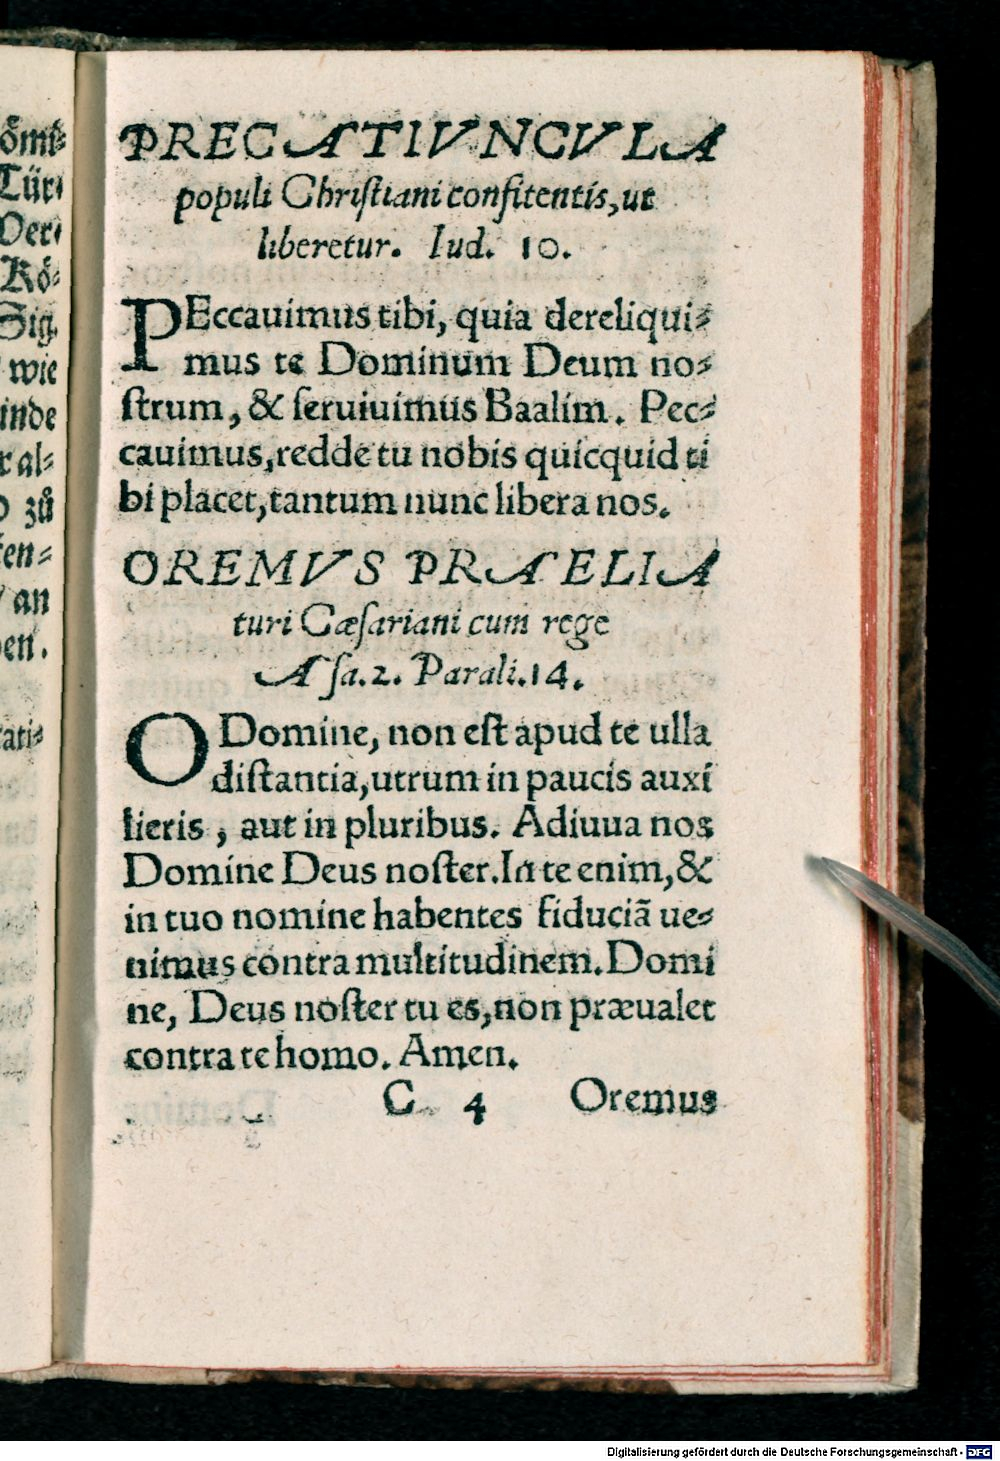 ömi⸗
Tür⸗
Ver⸗
Kö⸗
Sig.
wie
inde
r al⸗
zů
en⸗
an
en.
ati⸗
PRECATIVNCVLA
populi Chriſtiani confitentis, ut
liberetur. Iud. 10.
PEccauimus tibi, quia dereliqui⸗
mus te Dominum Deum no⸗
ſtrum, & ſeruiuimus Baalim. Pec⸗
cauimus, redde tu nobis quicquid ti
bi placet, tantum nunc libera nos.
OREMVS PRAELIA
turi Cæſariani cum rege
Aſa. 2. Parali. 14.
O Domine, non eſt apud te ulla
diſtantia, utrum in paucis auxi
lieris, aut in pluribus. Adiuua nos
Domine Deus noſter. In te enim, &
in tuo nomine habentes fiduciã ue⸗
nimus contra multitudinem. Domi
ne, Deus noſter tu es, non præualet
contra te homo. Amen.
C 4 Oremus
Digitalisierung gefördert durch die Deutsche Forschungsgemeinschaft - DFG